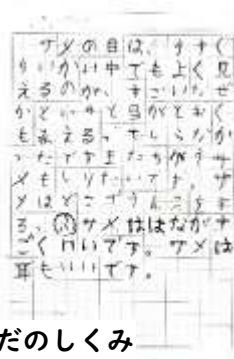 サメの目は、うすぐ
らいかい中でもよく見
えるのか、すごいな。ぜ
かというと目がとおく
もみえるってしらなか
ったですまたちがうサ
メもしりたいです。サ
メはどこでうんこをす
る。⑧サメははながす
ごくいいです。サメは
耳もいいです。
だのしくみ